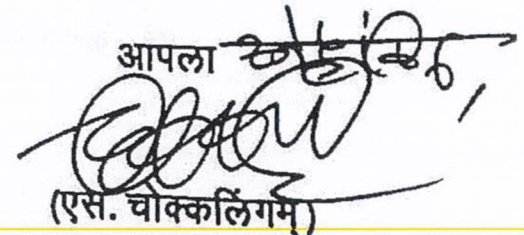 आपला
(एस. चोक्कलिंगम्)